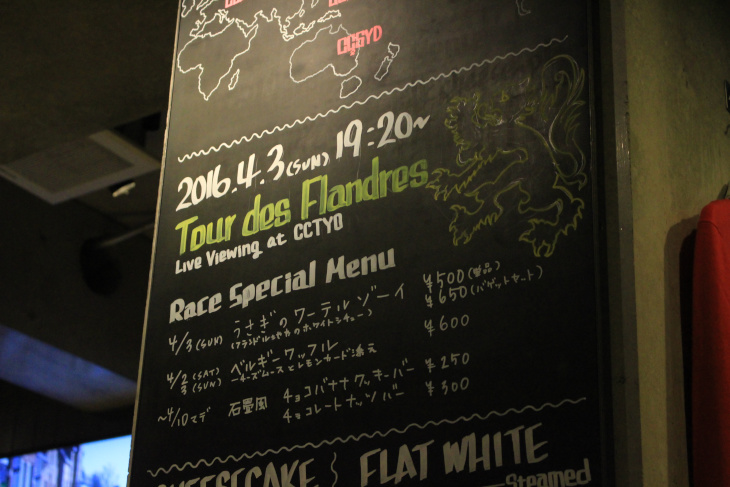 CCSYD
2016.4.3(SUN) 19:20~
Tour des Flandres
Live Viewing at CCTYO
Race Special Menu
4/3(SUN) うさぎのワーテルゾーイ ¥500(単品)
(フランドル地方のホワイトシチュー) ¥650(バゲットセット)
4/2(SAT) ベルギーワッフル ¥600
3(SUN) ーチーズムースとレモンカード添え
~4/10マデ 石畳風 チョコバナナクッキーバー ¥250
チョコレートナッツバー ¥300
CHEESECAKE FLAT WHITE
Steamed